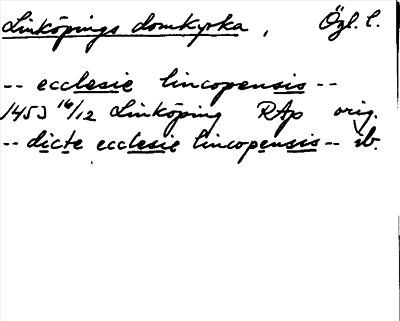 Linköpings domkyrka, Ögl. l.
-- ecclesie lincopensis --
1453 16/12 Linköping RAp orig.
-- dicte ecclesie lincopensis -- ib.